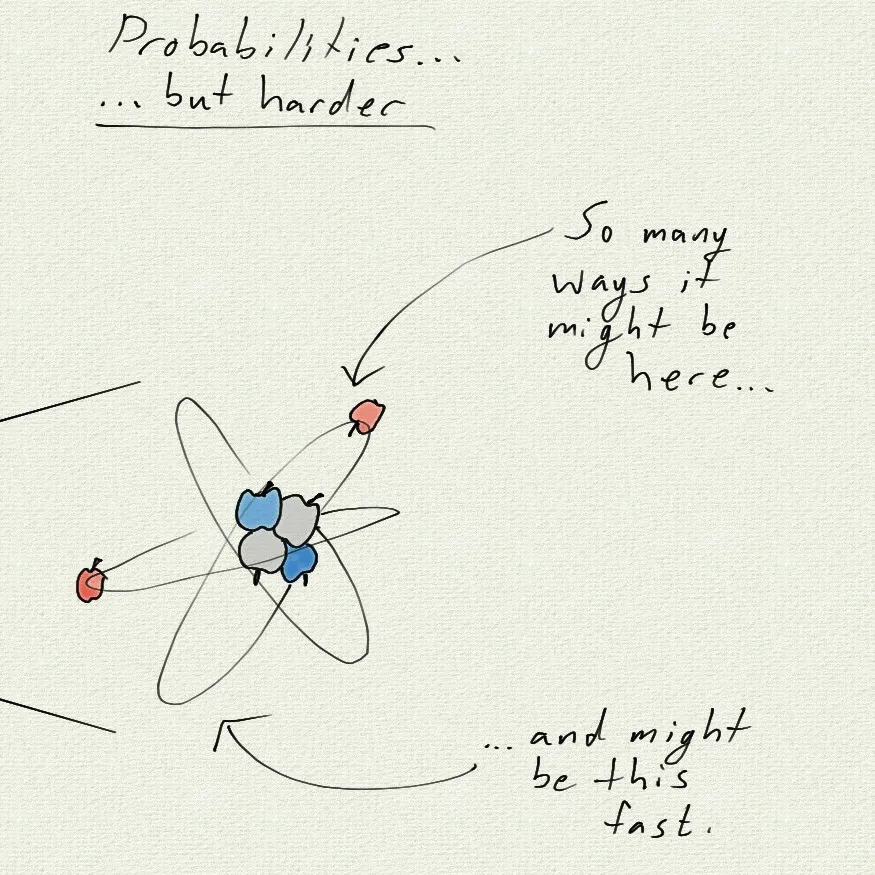 Probabilities...
... but harder
So many
ways it
might be
here...
... and might
be this
fast.